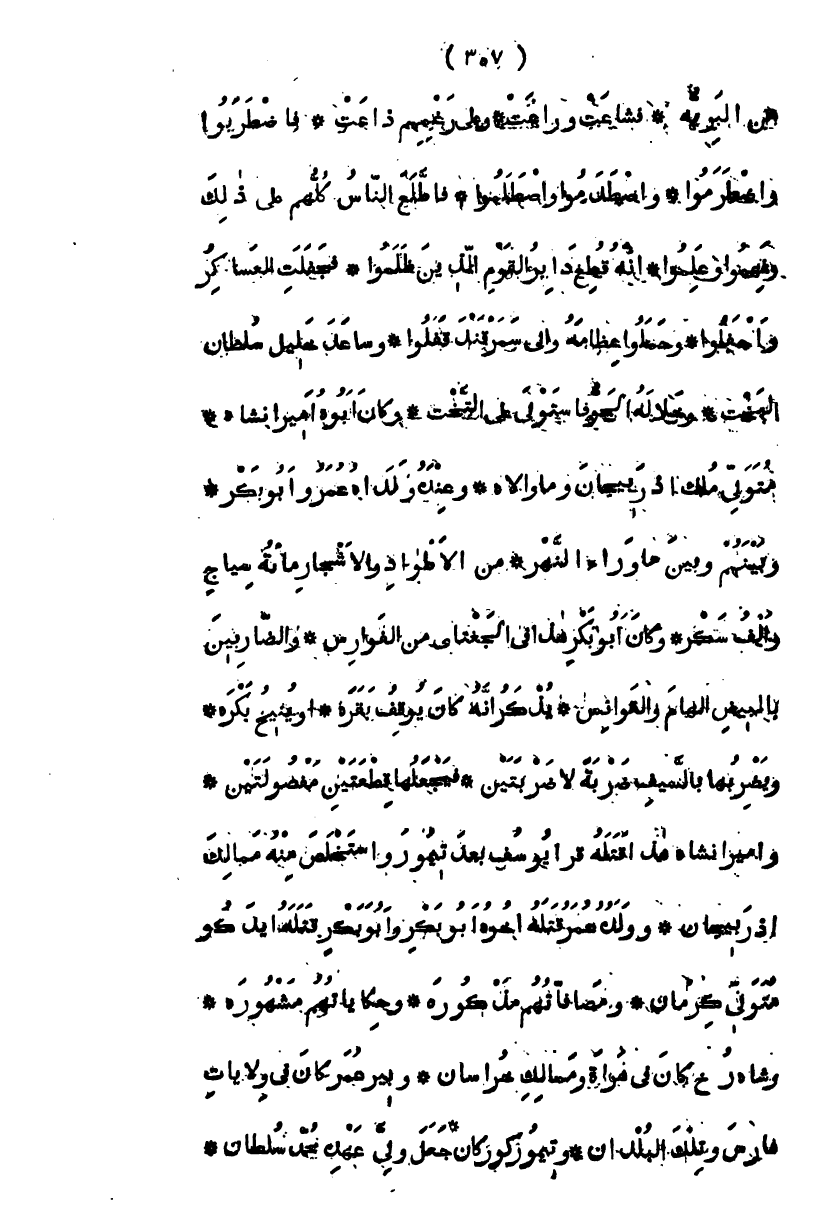 ( ٣٠٧ )
من البَرِيَّه * فشاعَتْ وراعَتْ * وعلى رَغْمِهِم ذاعَتْ * فاضْطَرَبُوا
واضْطَرَمُوا * واصْطَدَمُوا واصْطَلَمُوا * فاطَّلَعَ النّاسُ كُلُّهم على ذٰلِكَ
وفَهِمُوا وعَلِمُوا * انَّه قُطِعَ دَابِرُ القَوْمِ الَّذِينَ ظَلَمُوا * فجَفَلَتِ العَساكِرُ
وأحْفَلُوا * وحَمَلُوا عِظامَهُ والى سَمَرْقَنْدَ قَفَلُوا * وساعَدَ خليل سُلطان
البَخْت * وخَلا لَهُ الجَوُّ فاستَوْلَى على التَّخْت * وكانَ أبُوهُ أمِيرانشاه *
مُتَوَلِّىَ مُلك اذرَبِيجانَ وما والاه * وعِنْدَهُ وَلَداهُ عُمَرُ وأبُو بَكْر *
وبَيْنَهُمْ وبينَ ماوَراءَ النَّهْر * من الأطْوادِ والأشْجارِ مائةُ سِياجٍ
وألْفُ سَكْر * وكانَ أبُو بَكْرٍ هٰذا فى الجَغْتاى من الفَوارِس * والضّارِبِينَ
بالبِيضِ الهامَ والقَوانِس * يُذْكَرُ انَّهُ كانَ يُوقِفُ بَقَرَه * او يُنِيخُ بَكْرَه *
ويَضْرِبُها بالسَّيفِ ضَرْبَةً لا ضَرْبَتَيْن * فيَجْعَلُها قِطْعَتَيْنِ مَفْصُولَتَيْن *
واميرانشاه هٰذا قَتَلَهُ قرا يُوسُف بعدَ تِيمُورَ واستَخْلَصَ مِنْهُ مَمالِكَ
اذرَبِيجان * وولَدُهُ عمر قَتَلَهُ اخُوهُ أبُو بَكْرٍ وأبُو بَكْرٍ قَتَلَهُ ايدَكُو
مُتَوَلِّى كِرْمان * ومَصافاتُهُم مَذْكُورَه * وحِكاياتُهُم مَشْهُورَه *
وشاه رُخ كانَ فى هَراةَ ومَمالِكِ خُراسان * وپير عُمَر كانَ فى وِلاياتِ
فارِسَ وتِلْكَ البُلْدان * وتِيمُورُ كوركان جَعَلَ ولِىَّ عَهْدِهِ مُحَمَّد سُلطان *